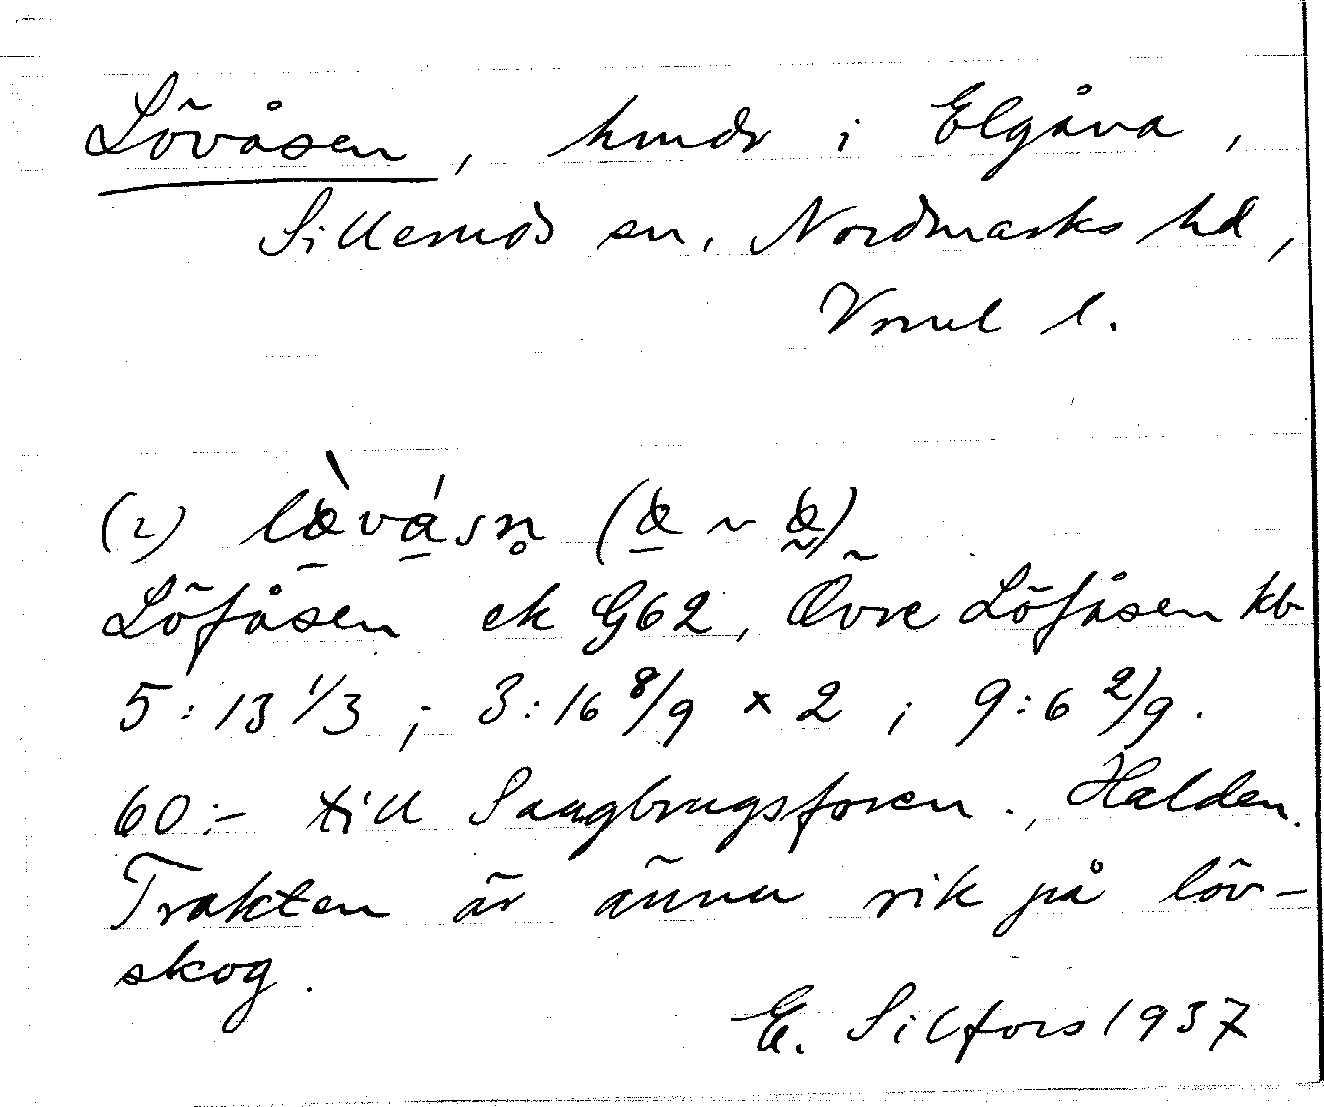 Lövåsen, hmdr i Elgåna,
Silleruds sn, Nordmarks hd,
Vrml l.
(2) lœ̀vásn̥ (œ ~ œ)
Löfåsen ek G62, Övre Löfåsen kb
5:13 1/3; 3:16 8/9 x 2; 9:6 2/9.
60:- till Saugbrugsforen., Halden.
Trakten är ännu rik på löv-
skog.
E. Silfors 1937